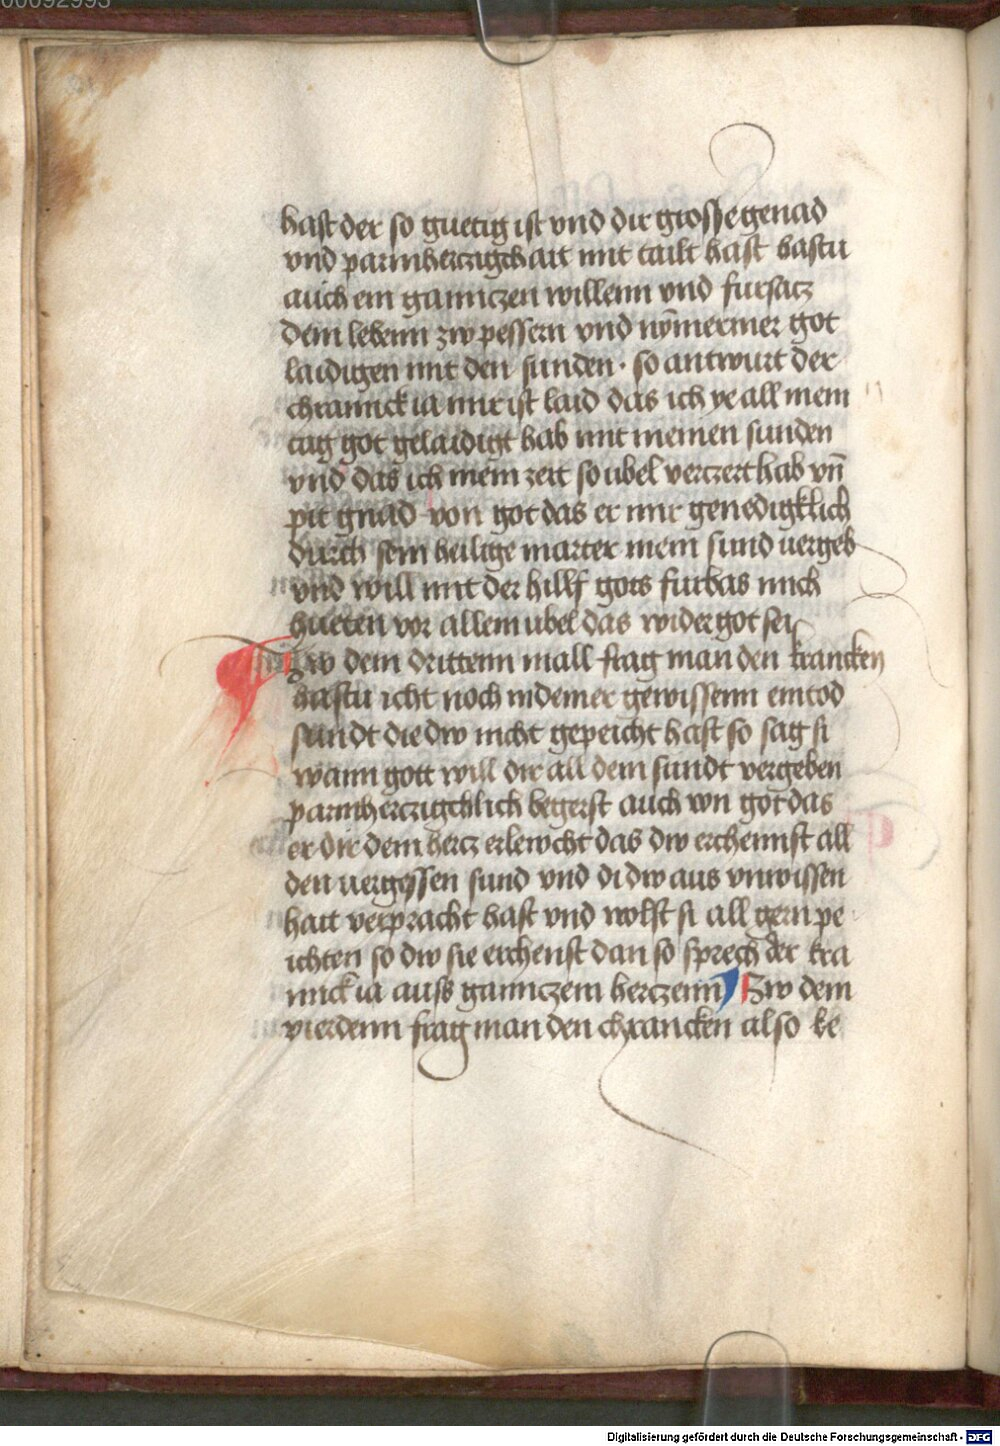 00092993
hast der so guetig ist vnd dir grosse genad
vnd parmherczigchait mit tailt hast hastu
auch ein gannczen willenn vnd fursacz
dein lebenn zw pessern vnd nÿmermer got
laidigen mit den sunden · so antwurt der
chrannck ia mir ist laid das ich ye all mein
tag got gelaidigt hab mit meinen sunden
vnd das ich mein zeit so ubel verczert hab vn̄
pit gnad von got das er mir genedigklich
durch sein heilige marter mein sund uergeb
vnd will mit der hillf gots furbas mich
hueten vor allem ubel das wider got sei
Zw dem drittenn mall frag man den krancken
hastu icht noch in deiner gewissenn ein tod
sundt die dw nicht gepeicht hast so sag si
wann gott will dir all dein sundt vergeben
parmherczigchlich begerst auch von got das
er dir dein hercz erlewcht das dw erchennst all
den uergessen sund vnd di dw aus vnwissen
hait verpracht hast vnd wolst si all gern pe
ichten so dw sie erchenst dan so sprech der kra
nnck ia auss gannczem herczenn Zw dem
vierdenn frag man den chrancken also be
Digitalisierung gefördert durch die Deutsche Forschungsgemeinschaft - DFG